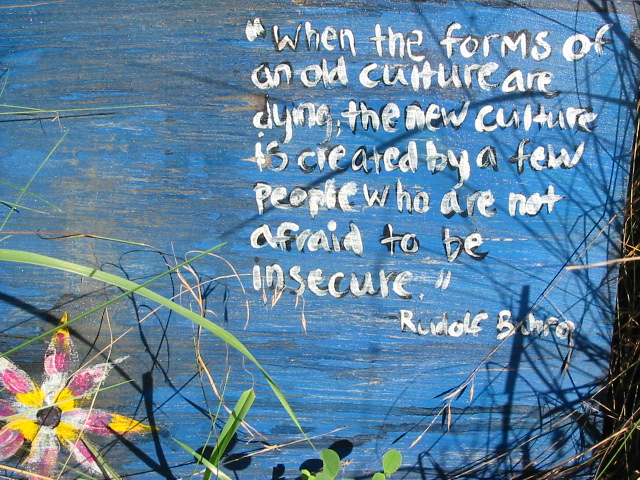 "when the forms of
an old culture are
dying, the new culture
is created by a few
people who are not
afraid to be
insecure."
Rudolf Bahro